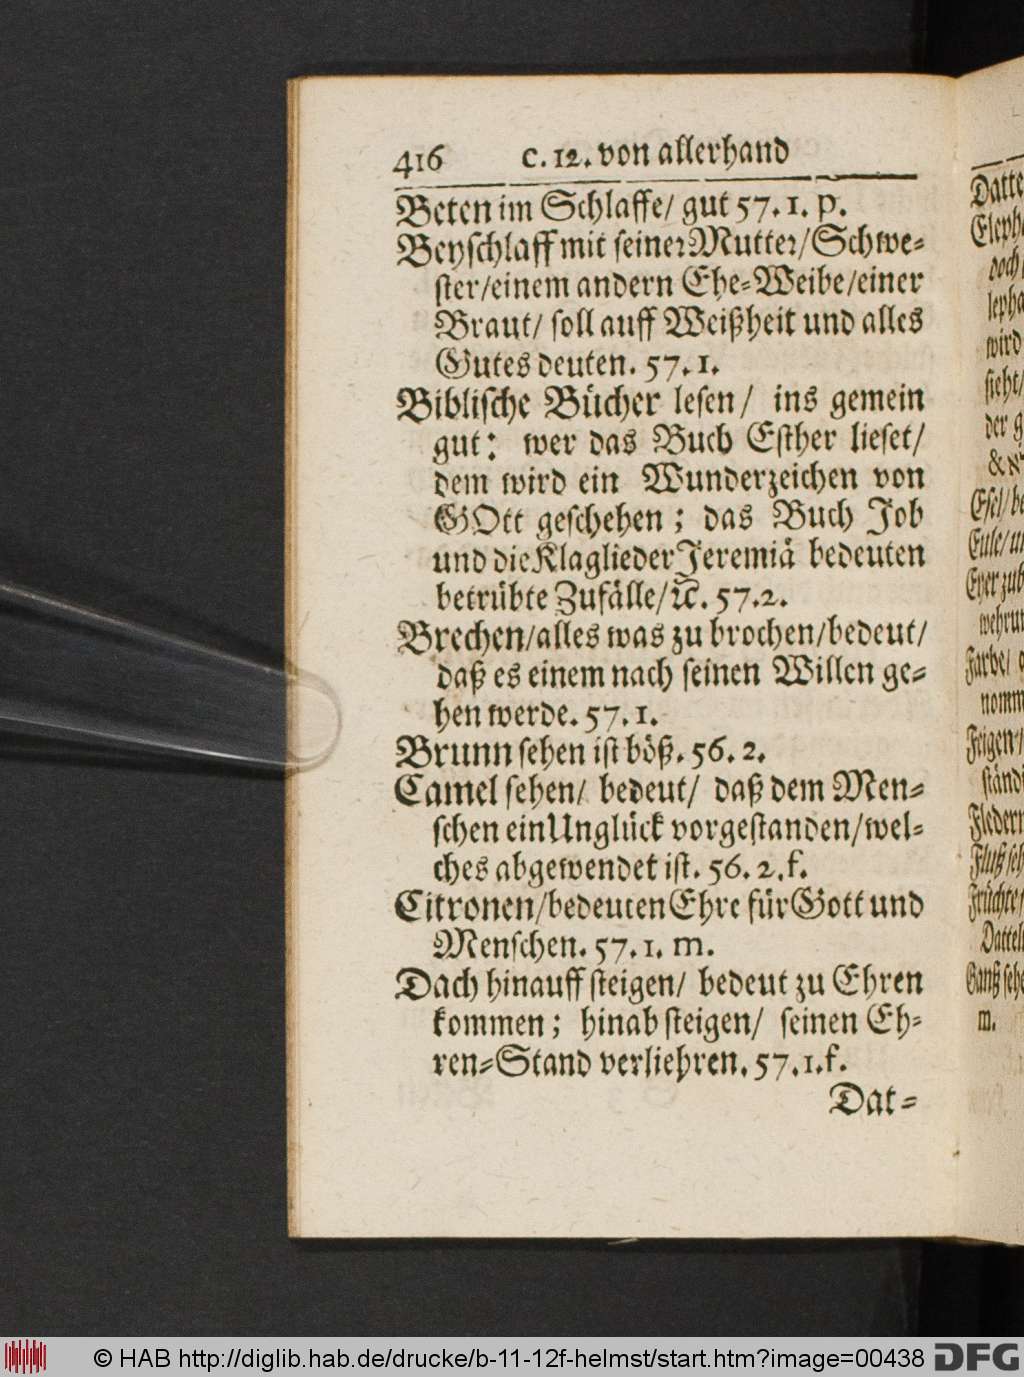 416 c. 12. von allerhand
Beten im Schlaffe/ gut 57. 1. p.
Beyschlaff mit seiner Mutter/Schwe-
ster/einem andern Ehe-Weibe/einer
Braut/ soll auff Weißheit und alles
Gutes deuten. 57. 1.
Biblische Bücher lesen/ ins gemein
gut: wer das Buch Esther lieset/
dem wird ein Wunderzeichen von
GOtt geschehen; das Buch Job
und die Klaglieder Jeremiä bedeuten
betrübte Zufälle/ꝛc. 57.2.
Brechen/alles was zu brochen/bedeut/
daß es einem nach seinen Willen ge-
hen werde. 57. 1.
Brunn sehen ist böß. 56. 2.
Camel sehen/ bedeut/ daß dem Men-
schen ein Unglück vorgestanden/wel-
ches abgewendet ist. 56. 2. f.
Citronen/bedeuten Ehre für Gott und
Menschen. 57. 1. m.
Dach hinauff steigen/ bedeut zu Ehren
kommen; hinab steigen/ seinen Eh-
ren-Stand verliehren. 57. 1. f.
Dat-
Datte
Eleph
doch
lepha
wird
sieht/
der g
&
Esel/ be
Eule/ un
Eyer zub
wehrun
Farbe/
nomm
Feigen/
ständi
Fledern
Fluß seh
Früchte/
Dattel
Ganß sehe
m.
© HAB http://diglib.hab.de/drucke/b-11-12f-helmst/start.htm?image=00438 DFG